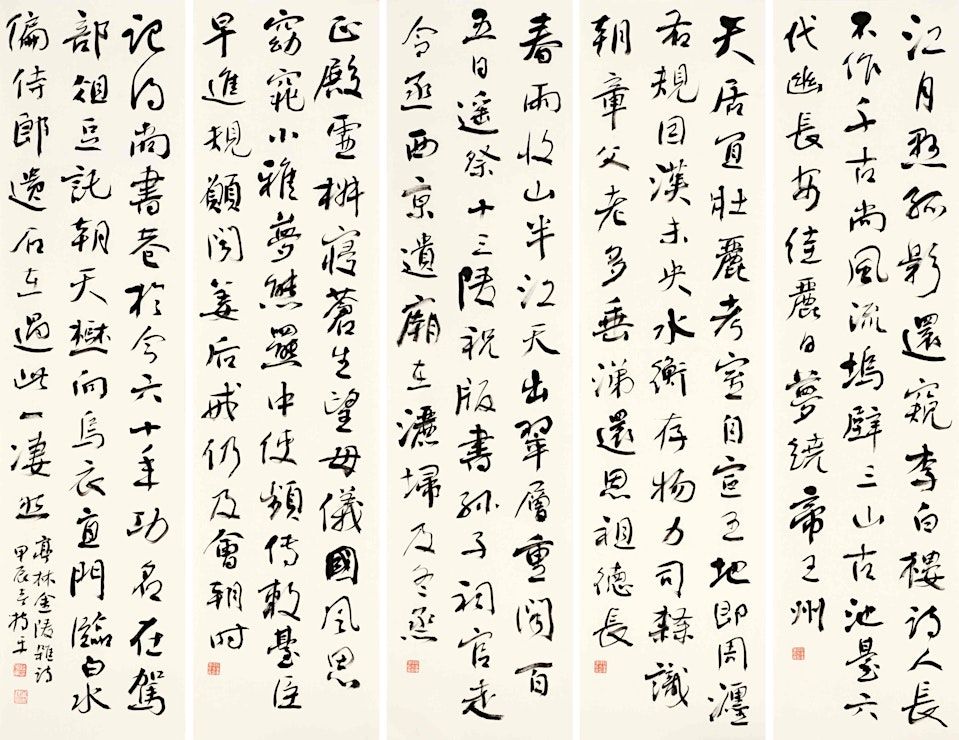 江月懸孤影還窺李白樓詩人長
不作千古尚風流塢壁三山古池臺六
代幽長安佳麗日夢繞帝王州
天居宜壯麗考室自宣王地即周瀍
右規因漢未央水衡存物力司隸識
朝章父老多垂涕還思祖德長
春雨收山半江天出翠層重聞百
五日遙祭十三陵祝版書孫子祠官走
令丞西京遺廟在灑埽及冬烝
正殿虛椒寢蒼生望母儀國風思
窈窕小雅夢熊羆中使頻傳敕臺臣
早進規願聞姜后戒仍及會朝時
記得尚書巷於今六十年功名存駕
部俎豆託朝天樹向烏衣直門臨白水
偏侍郎遺石在過此一凄然
亭林金陵雜詩
甲辰